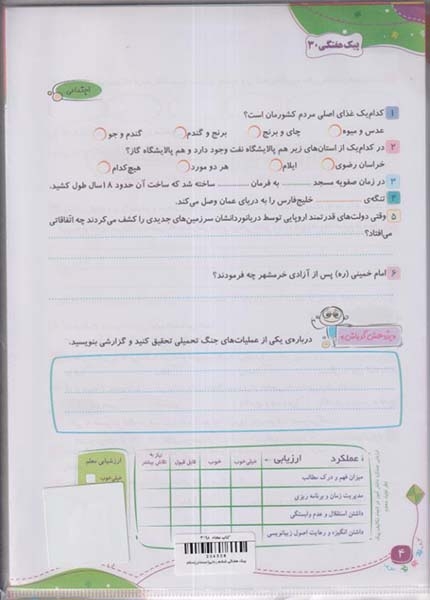 پیک هفتگی ۳۰
اجتماعی
۱ کدام‌یک غذای اصلی مردم کشورمان است؟
عدس و میوه چای و برنج برنج و گندم گندم و جو
۲ در کدام‌یک از استان‌های زیر هم پالایشگاه نفت وجود دارد و هم پالایشگاه گاز؟
خراسان رضوی ایلام هر دو مورد هیچ‌کدام
۳ در زمان صفویه مسجد ............ به فرمان ............ ساخته شد که ساخت آن حدود ۱۸ سال طول کشید.
۴ تنگه‌ی ............ خلیج‌فارس را به دریای عمان وصل می‌کند.
۵ وقتی دولت‌های قدرتمند اروپایی توسط دریانوردانشان سرزمین‌های جدیدی را کشف می‌کردند چه اتّفاقاتی
می‌افتاد؟
۶ امام خمینی (ره) پس از آزادی خرمشهر چه فرمودند؟
درباره‌ی یکی از عملیات‌های جنگ تحمیلی تحقیق کنید و گزارشی بنویسید.
عملکرد ارزیابی خیلی‌خوب خوب قابل قبول نیاز به تلاش بیشتر
ارزشیابی معلم
خیلی‌خوب
میزان فهم و درک مطالب
مدیریت زمان و برنامه ریزی
داشتن استقلال و عدم وابستگی
داشتن انگیزه و رعایت اصول زیبانویسی
۴